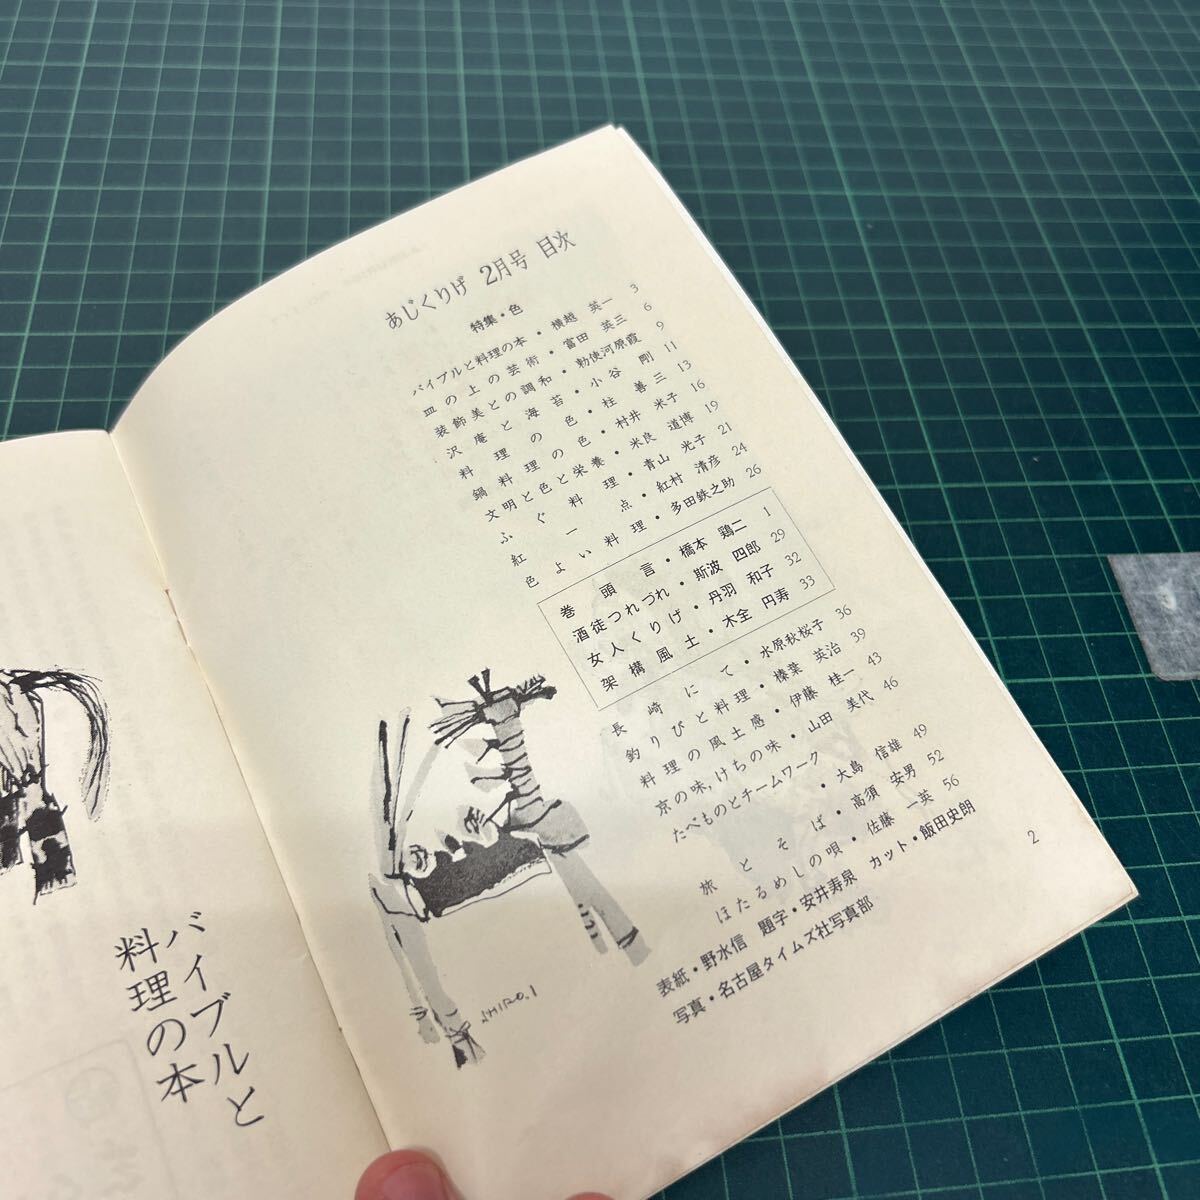 あじくりげ 2月号 目次
特集・色
バイブルと料理の本・横越 英一 3
皿の上の芸術・富田 英三 6
装飾美との調和・勅使河原霞 9
沢庵と海苔・小谷 剛 11
料理の色・柱 善三 13
鍋料理の色・村井 米子 16
文明と色と栄養・米良 道博 19
ふぐ料理・青山 光子 21
紅一点・紅村 清彦 24
色よい料理・多田鉄之助 26
巻頭言・橋本 鶏二 1
酒徒つれづれ・斯波 四郎 29
女人くりげ・丹羽 和子 32
架構風土・木全 円寿 33
長崎にて・水原秋桜子 36
釣りびと料理・榛葉 英治 39
料理の風土感・伊藤 桂一 43
京の味,けちの味・山田 美代 46
たべものとチームワーク・大島 信雄 49
旅とそば・高須 安男 52
ほたるめしの唄・佐藤 一英 56
表紙・野水信 題字・安井寿泉 カット・飯田史朗
写真・名古屋タイムズ社写真部
2
SHIRO.I
バイブルと
料理の本